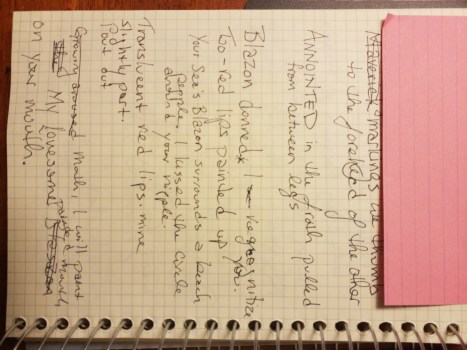 Maverick marlines we thumb
to the forehead of the other
ANNOINTED in the froth pulled
from between legs
Blazon donned. I recognitize
you.
Too-red lips painted up
Your Sea's Blazon surrounds a beach
pebble. I kissed the circle
around your nipple.
Translucent red lips: mine
slightly part.
Part out
Growing aroused math, I will paint
My lonesome painted mouth
on your mouth.